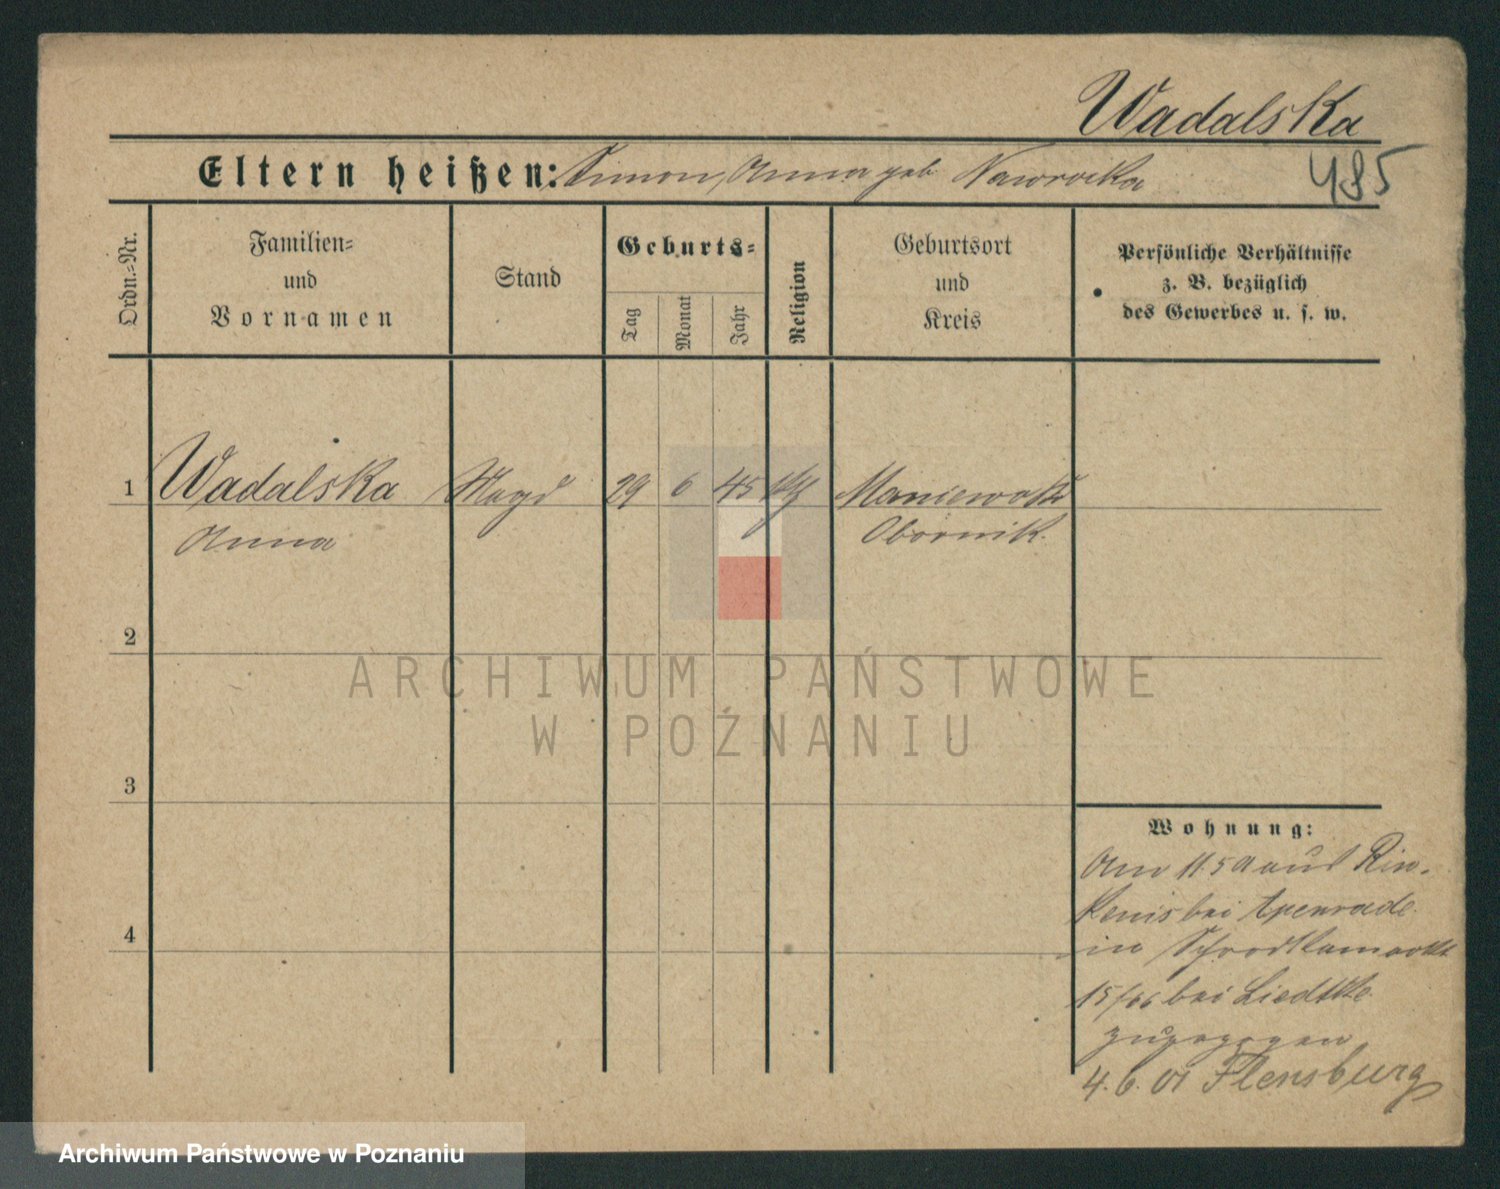 Wadalska
Eltern heißen: Simon, Anna geb Nawrocka
485
Ordn.=Nr.
Familien=
und
Vornamen
Stand
Geburts=
Tag
Monat
Jahr
Religion
Geburtsort
und
Kreis
Persönliche Verhältnisse
z. B. bezüglich
des Gewerbes u. s. w.
1
Wadalska
Anna
Magd
29
6
45
Maniewo
Obornik.
2
3
4
Wohnung:
Am 11.5 aus Rin-
kenis bei Apenrade
in
15/66 bei Liedtke
zugezogen
4. 6. 01 Flensburg
ARCHIWUM PAŃSTWOWE
W POZNANIU
Archiwum Państwowe w Poznaniu